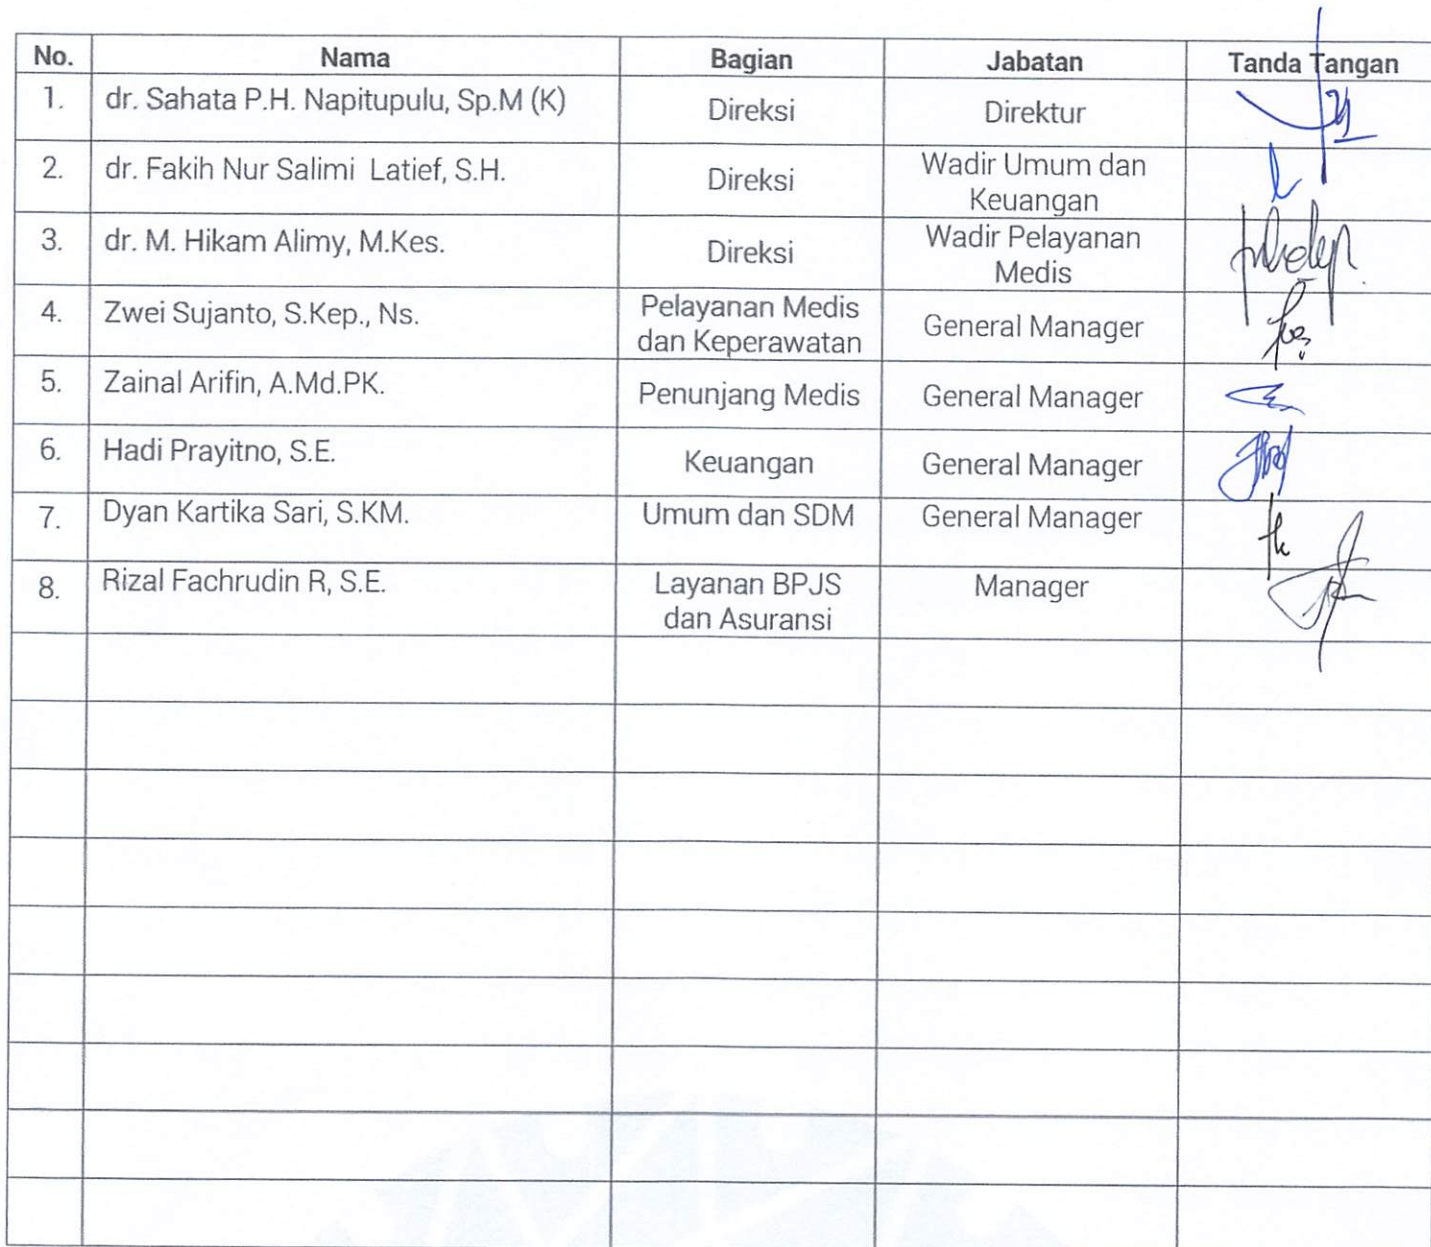 No. Nama Bagian Jabatan Tanda Tangan
1. dr. Sahata P.H. Napitupulu, Sp.M (K) Direksi Direktur
2. dr. Fakih Nur Salimi Latief, S.H. Direksi Wadir Umum dan
Keuangan
3. dr. M. Hikam Alimy, M.Kes. Direksi Wadir Pelayanan
Medis
4. Zwei Sujanto, S.Kep., Ns. Pelayanan Medis General Manager
dan Keperawatan
5. Zainal Arifin, A.Md.PK. Penunjang Medis General Manager
6. Hadi Prayitno, S.E. Keuangan General Manager
7. Dyan Kartika Sari, S.KM. Umum dan SDM General Manager
8. Rizal Fachrudin R, S.E. Layanan BPJS Manager
dan Asuransi